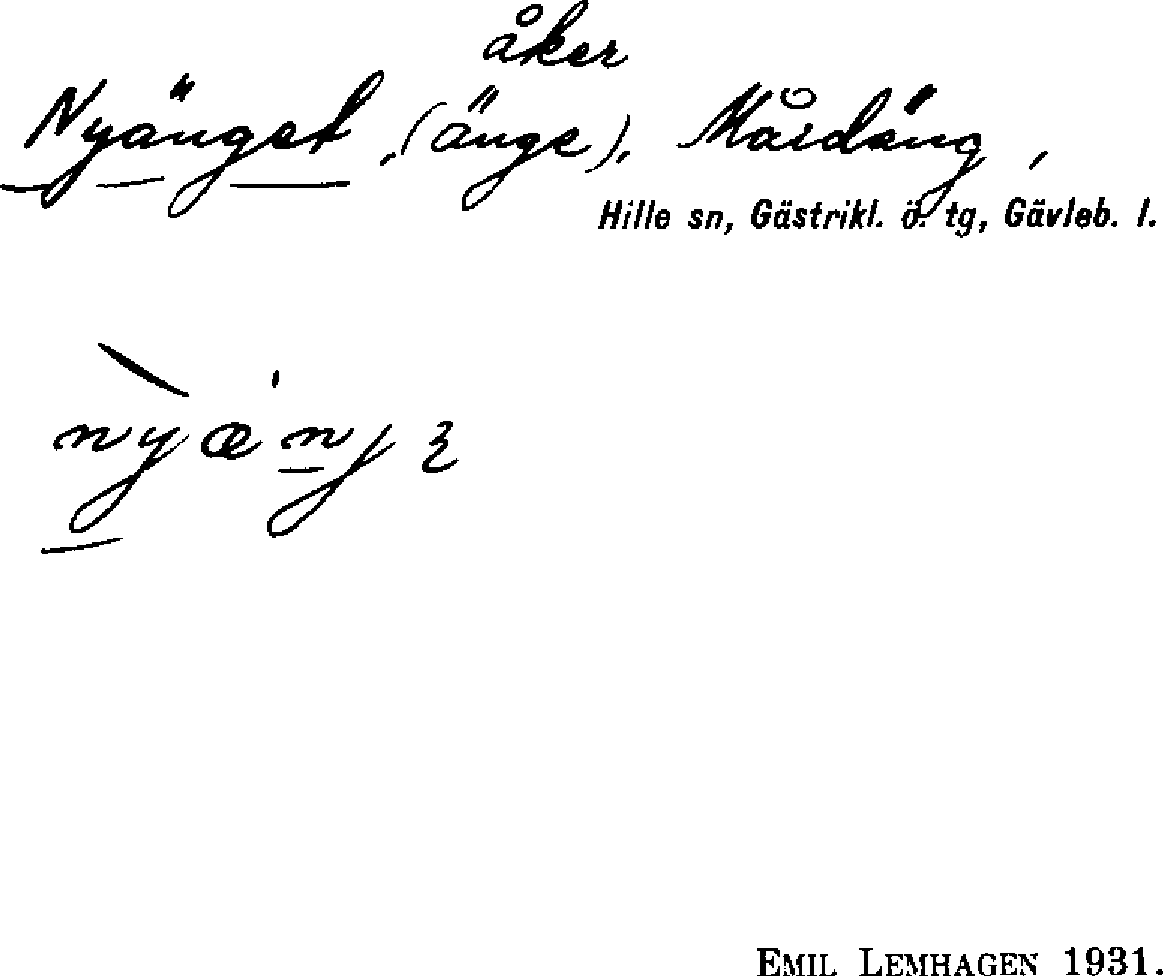 åker
Nyänget, (änge), Mårdäng,
Hille sn, Gästrikl. ö. tg, Gävleb. l.
nyænjɜ
EMIL LEMHAGEN 1931.